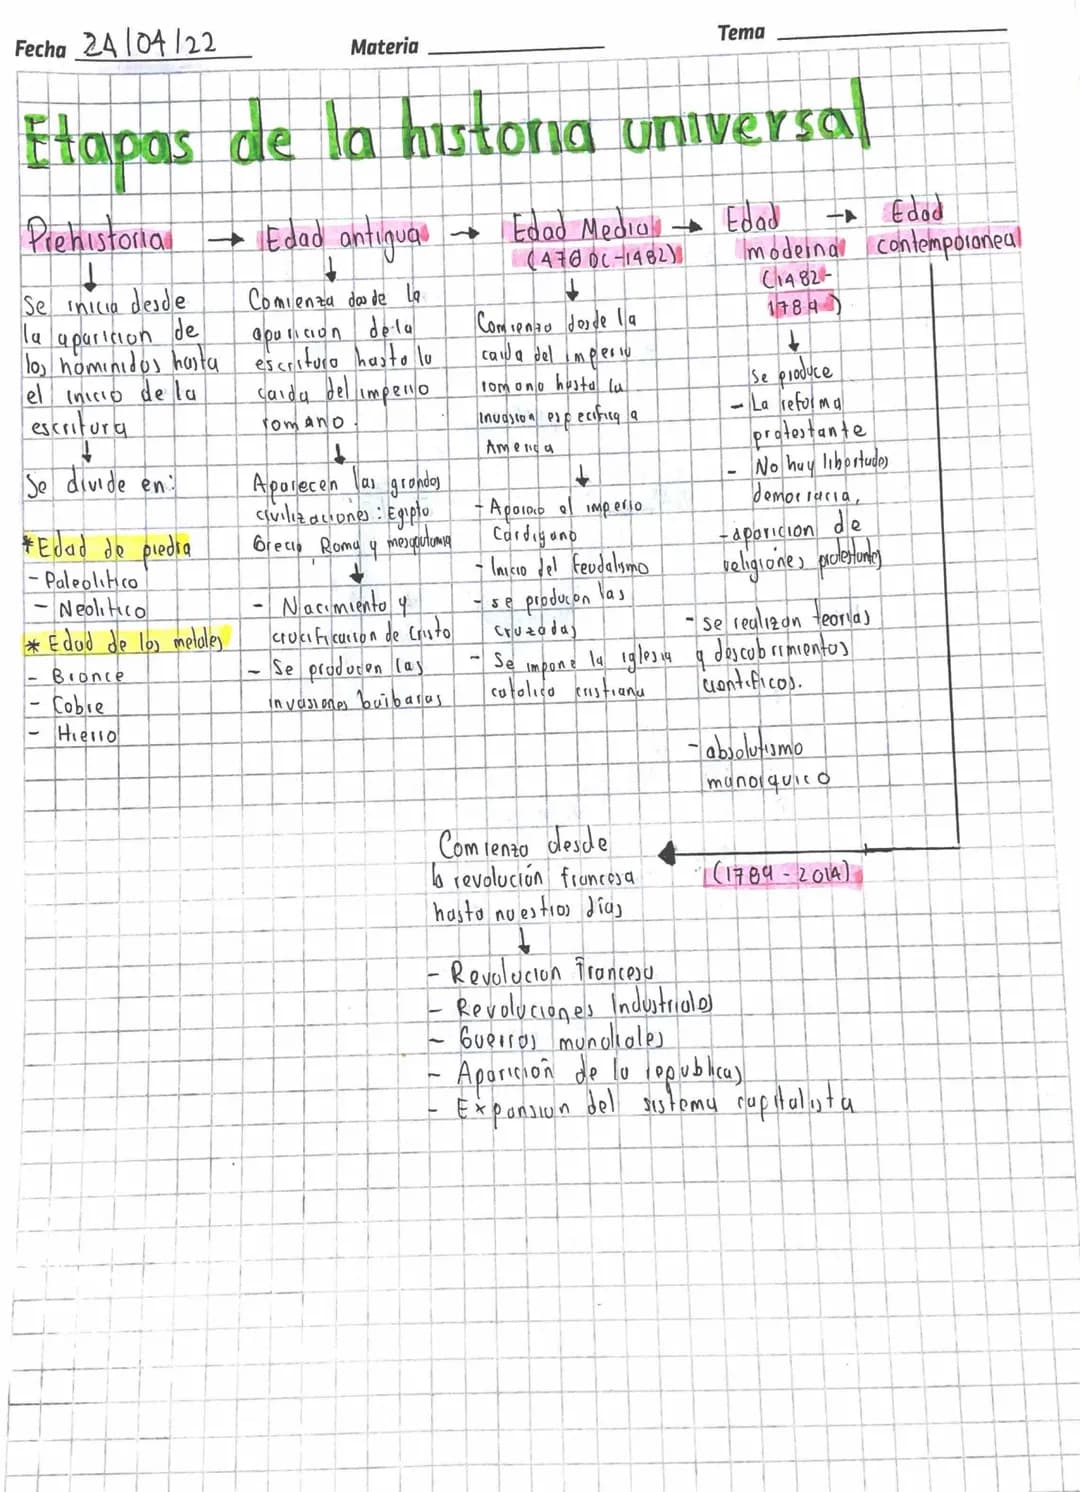 Fecha 24/04/22 Materia Tema
Etapas de la historia universal
Prehistoria → Edad antigua → Edad Media → Edad moderna → Edad contemporanea
Se inicia desde
la aparicion de
los hominidos hasta
el inicio de la
escritura
Se divide en:
*Edad de piedra
- Paleolitico
- Neolitico
* Edad de los metales
- Bronce
- Cobre
- Hierro
Comienza desde la
aparicion de la
escritura hasta la
caida del imperio
romano.
Aparecen las grandes
civilizaciones: Egipto
Grecia Roma y mesopotamia
- Nacimiento y
crucificacion de Cristo
- Se producen las
invasiones barbaras
(476 DC-1482)
Comienza desde la
caida del imperio
romano hasta la
invasion especifica a
America
- Aparece el imperio
- Inicio del feudalismo
- se producen las
cruzadas
- Se impone la iglesia
catolica cristiana
(1482-
1789)
Se produce
- La reforma
protestante
- No hay libertades
democracia,
- aparicion de
religiones protestantes
- se realizan teorias
y descubrimientos
cientificos.
- absolutismo
monarquico
(1789-2014)
Comienza desde
la revolución francesa
hasta nuestros días
- Revolucion Francesa
- Revoluciones Industriales
- Guerras mundiales
- Aparición de la republicas
- Expansion del sistema capitalista